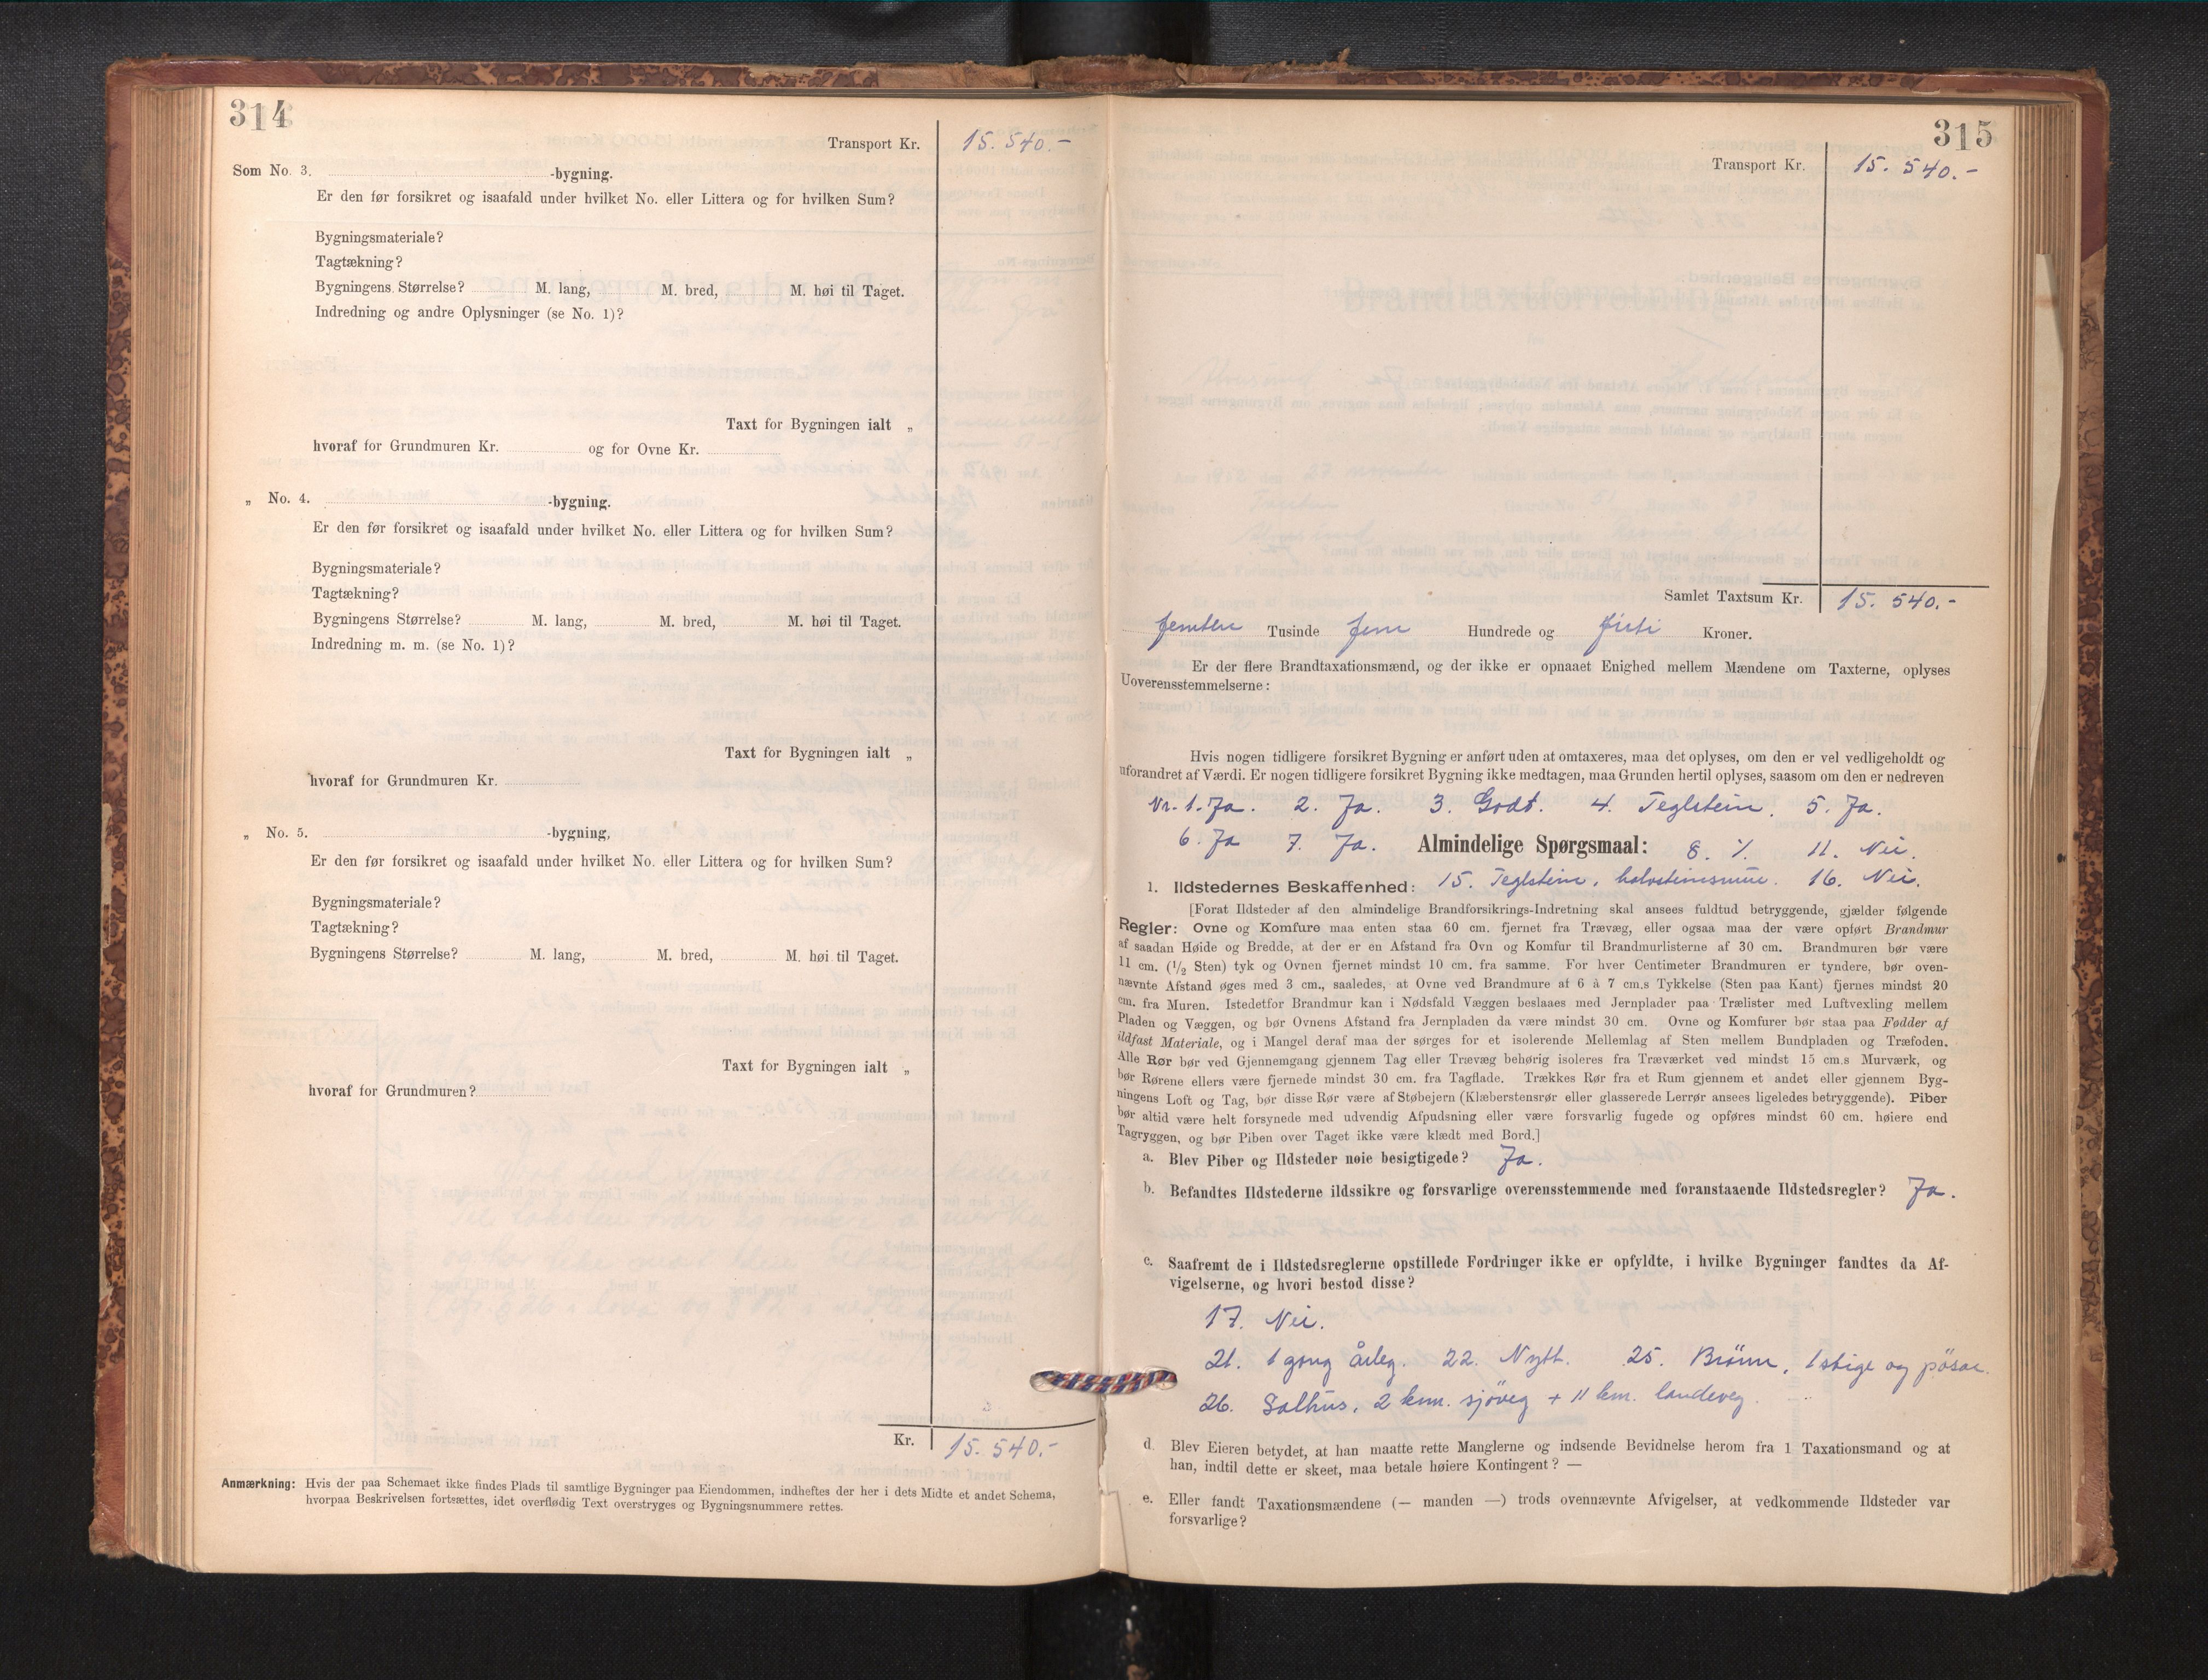 314
Transport Kr. 15.540.-
Som No. 3. -bygning.
Er den før forsikret og isaafald under hvilket No. eller Littera og for hvilken Sum?
Bygningsmateriale?
Tagtækning?
Bygningens Størrelse? M. lang, M. bred, M. høi til Taget.
Indredning og andre Oplysninger (se No. 1)?
Taxt for Bygningen ialt „
hvoraf for Grundmuren Kr. og for Ovne Kr.
„ No. 4. -bygning.
Er den før forsikret og isaafald under hvilket No. eller Littera og for hvilken Sum?
Bygningsmateriale?
Tagtækning?
Bygningens Størrelse? M. lang, M. bred, M. høi til Taget.
Indredning m. m. (se No. 1)?
Taxt for Bygningen ialt „
hvoraf for Grundmuren Kr.
„ No. 5. -bygning,
Er den før forsikret og isaafald under hvilket No. eller Littera og for hvilken Sum?
Bygningsmateriale?
Tagtækning?
Bygningens Størrelse? M. lang, M. bred, M. høi til Taget.
Taxt for Bygningen ialt „
hvoraf for Grundmuren?
Kr. 15.540.-
Anmærkning: Hvis der paa Schemaet ikke findes Plads til samtlige Bygninger paa Eiendommen, indheftes der her i dets Midte et andet Schema,
hvorpaa Beskrivelsen fortsættes, idet overflødig Text overstryges og Bygningsnummere rettes.
315
Transport Kr. 15.540.-
Samlet Taxtsum Kr. 15.540.-
femten Tusinde fem Hundrede og førti Kroner.
Er der flere Brandtaxationsmænd, og der ikke er opnaaet Enighed mellem Mændene om Taxterne, oplyses
Uoverensstemmelserne:
Hvis nogen tidligere forsikret Bygning er anført uden at omtaxeres, maa det oplyses, om den er vel vedligeholdt og
uforandret af Værdi. Er nogen tidligere forsikret Bygning ikke medtagen, maa Grunden hertil oplyses, saasom om den er nedreven
Nr. 1. Ja. 2. Ja. 3. Godt. 4. Teglstein. 5. Ja.
6. Ja 7. Ja. Almindelige Spørgsmaal: 8. % 11. Nei.
1. Ildstedernes Beskaffenhed: 15. Teglstein, holsteinsmur. 16. Nei.
[Forat Ildsteder af den almindelige Brandforsikrings-Indretning skal ansees fuldtud betryggende, gjælder følgende
Regler: Ovne og Komfure maa enten staa 60 cm. fjernet fra Trævæg, eller ogsaa maa der være opført Brandmur
af saadan Høide og Bredde, at der er en Afstand fra Ovn og Komfur til Brandmurlisterne af 30 cm. Brandmuren bør være
11 cm. (1/2 Sten) tyk og Ovnen fjernet mindst 10 cm. fra samme. For hver Centimeter Brandmuren er tyndere, bør oven-
nævnte Afstand øges med 3 cm., saaledes, at Ovne ved Brandmure af 6 à 7 cm.s Tykkelse (Sten paa Kant) fjernes mindst 20
cm. fra Muren. Istedetfor Brandmur kan i Nødsfald Væggen beslaaes med Jernplader paa Trælister med Luftvexling mellem
Pladen og Væggen, og bør Ovnens Afstand fra Jernpladen da være mindst 30 cm. Ovne og Komfurer bør staa paa Fødder af
ildfast Materiale, og i Mangel deraf maa der sørges for et isolerende Mellemlag af Sten mellem Bundpladen og Træfoden.
Alle Rør bør ved Gjennemgang gjennem Tag eller Trævæg behørig isoleres fra Træværket ved mindst 15 cm.s Murværk, og
bør Rørene ellers være fjernede mindst 30 cm. fra Tagflade. Trækkes Rør fra et Rum gjennem et andet eller gjennem Byg-
ningens Loft og Tag, bør disse Rør være af Støbejern (Klæberstensrør eller glasserede Lerrør ansees ligeledes betryggende). Piber
bør altid være helt forsynede med udvendig Afpudsning eller være forsvarlig fugede og opføres mindst 60 cm. høiere end
Tagryggen, og bør Piben over Taget ikke være klædt med Bord.]
a. Blev Piber og Ildsteder nøie besigtigede? Ja.
b. Befandtes Ildstederne ildssikre og forsvarlige overensstemmende med foranstaaende Ildstedsregler? Ja.
c. Saafremt de i Ildstedsreglerne opstillede Fordringer ikke er opfyldte, i hvilke Bygninger fandtes da Af-
vigelserne, og hvori bestod disse?
17. Nei.
21. 1 gong årleg. 22. Nytt. 25. Brönn, 1 stige og pösar.
26. Salhus, 2 km. sjöveg + 11 km. landeveg.
d. Blev Eieren betydet, at han maatte rette Manglerne og indsende Bevidnelse herom fra 1 Taxationsmand og at
han, indtil dette er skeet, maa betale høiere Kontingent? —
e. Eller fandt Taxationsmændene (— manden —) trods ovennævnte Afvigelser, at vedkommende Ildsteder var
forsvarlige?